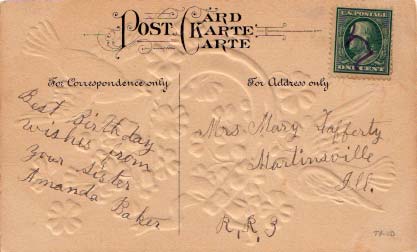 POST CARD
KARTE
CARTE
U.S. POSTAGE
ONE CENT
For Correspondence only
For Address only
Best Birthday
wishes from
your sister
Amanda Baker
Mrs Mary Lafferty
Martinsville
Ill.
R.R.3